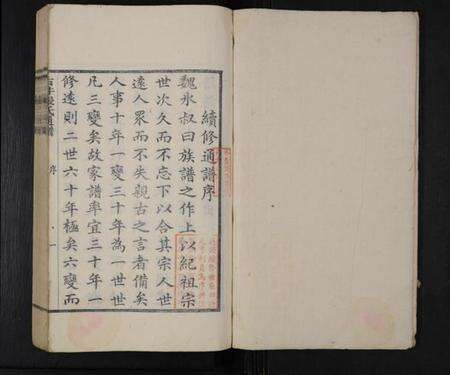 續修通譜序
魏氷叔曰族譜之作上以紀祖宗
世次久而不忘下以合其宗人世
遠人衆而不失親古之言者備矣
人事十年一變三十年為一世世
凡三變矣故家譜率宜三十年一
修遠則二世六十年極矣六變而
序
一